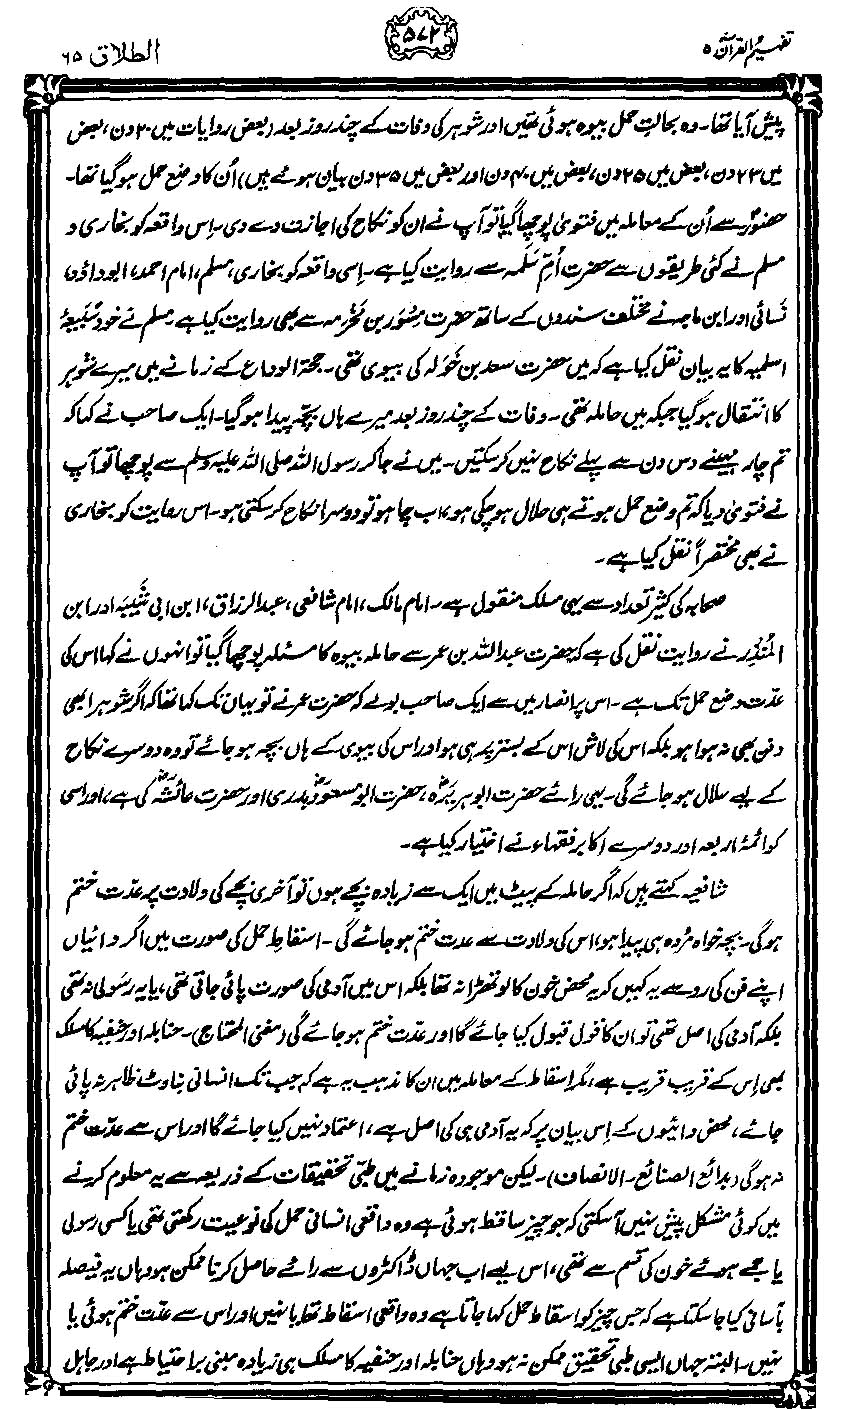 تفہیم القرآن ۵
۵۷۲
الطلاق ۶۵
پیش آیا تھا۔ وہ بحالتِ حمل بیوہ ہوئی تھیں اور شوہر کی وفات کے چند روز بعد (بعض روایات میں ۲۰ دن، بعض
میں ۲۳ دن، بعض میں ۲۵ دن، بعض میں ۴۰ دن اور بعض میں ۳۵ دن بیان ہوئے ہیں) اُن کا وضع حمل ہو گیا تھا۔
حضورؐ سے اُن کے معاملہ میں فتویٰ پوچھا گیا تو آپ نے ان کو نکاح کی اجازت دے دی۔ اِس واقعہ کو بخاری و
مسلم نے کئی طریقوں سے حضرت اُمِّ سَلَمہ سے روایت کیا ہے۔ اِسی واقعہ کو بخاری، مسلم، امام احمد، ابوداؤد،
نَسائی اور ابن ماجہ نے مختلف سندوں کے ساتھ حضرت مِسْوَر بن مَخْرَمہ سے بھی روایت کیا ہے۔ مسلم نے خود سُبَیْعَۂ
اسلمیہ کا یہ بیان نقل کیا ہے کہ میں حضرت سعد بن خَولہ کی بیوی تھی۔ حجۃ الوداع کے زمانے میں میرے شوہر
کا انتقال ہو گیا جبکہ میں حاملہ تھی۔ وفات کے چند روز بعد میرے ہاں بچّہ پیدا ہو گیا۔ ایک صاحب نے کہا کہ
تم چار مہینے دس دن سے پہلے نکاح نہیں کر سکتیں۔ میں نے جا کر رسول اللہ صلی اللہ علیہ وسلم سے پوچھا تو آپ
نے فتویٰ دیا کہ تم وضع حمل ہوتے ہی حلال ہو چکی ہو، اب چاہو تو دوسرا نکاح کر سکتی ہو۔ اس روایت کو بخاری
نے بھی مختصراً نقل کیا ہے۔
صحابہ کی کثیر تعداد سے یہی مسلک منقول ہے۔ امام مالک، امام شافعی، عبدالرزاق، ابن ابی شَیبَہ اور ابن
المُنذِر نے روایت نقل کی ہے کہ حضرت عبداللہ بن عمر سے حاملہ بیوہ کا مسئلہ پوچھا گیا تو انہوں نے کہا اس کی
عدّت وضع حمل تک ہے۔ اس پر انصار میں سے ایک صاحب بولے کہ حضرت عمر نے تو یہاں تک کہا تھا کہ اگر شوہر ابھی
دفن بھی نہ ہوا ہو بلکہ اس کی لاش اس کے بستر پر ہی ہو اور اس کی بیوی کے ہاں بچہ ہو جائے تو وہ دوسرے نکاح
کے لیے حلال ہو جائے گی۔ یہی رائے حضرت ابوہریرہؓ، حضرت ابو مسعودؓ بدری اور حضرت عائشہؓ کی ہے، اور اسی
کو ائمۂ اربعہ اور دوسرے اکابر فقہاء نے اختیار کیا ہے۔
شافعیہ کہتے ہیں کہ اگر حاملہ کے پیٹ میں ایک سے زیادہ بچے ہوں تو آخری بچے کی ولادت پر عدّت ختم
ہوگی۔ بچہ خواہ مُردہ ہی پیدا ہو، اس کی ولادت سے عدت ختم ہو جائے گی۔ اسقاطِ حمل کی صورت میں اگر دائیاں
اپنے فن کی رو سے یہ کہیں کہ یہ محض خون کا لوتھڑا نہ تھا بلکہ اس میں آدمی کی صورت پائی جاتی تھی، یا یہ رسولی نہ تھی
بلکہ آدمی کی اصل تھی تو ان کا قول قبول کیا جائے گا اور عدّت ختم ہو جائے گی (مغنی المحتاج)۔ حنابلہ اور حنفیہ کا مسلک
بھی اِس کے قریب قریب ہے، مگر اسقاط کے معاملہ میں ان کا مذہب یہ ہے کہ جب تک انسانی بناوٹ ظاہر نہ پائی
جائے، محض دائیوں کے اِس بیان پر کہ یہ آدمی ہی کی اصل ہے، اعتماد نہیں کیا جائے گا اور اس سے عدّت ختم
نہ ہوگی (بدائع الصنائع۔ الانصاف)۔ لیکن موجودہ زمانے میں طبّی تحقیقات کے ذریعہ سے یہ معلوم کرنے
میں کوئی مشکل پیش نہیں آ سکتی کہ جو چیز ساقط ہوئی ہے وہ واقعی انسانی حمل کی نوعیت رکھتی تھی یا کسی رسولی
یا جمے ہوئے خون کی قسم سے تھی، اس لیے اب جہاں ڈاکٹروں سے رائے حاصل کرنا ممکن ہو وہاں یہ فیصلہ
بآسانی کیا جا سکتا ہے کہ جس چیز کو اسقاطِ حمل کہا جاتا ہے وہ واقعی اسقاط تھا یا نہیں اور اس سے عدّت ختم ہوئی یا
نہیں۔ البتہ جہاں ایسی طبی تحقیق ممکن نہ ہو وہاں حنابلہ اور حنفیہ کا مسلک ہی زیادہ مبنی بر احتیاط ہے اور جاہل